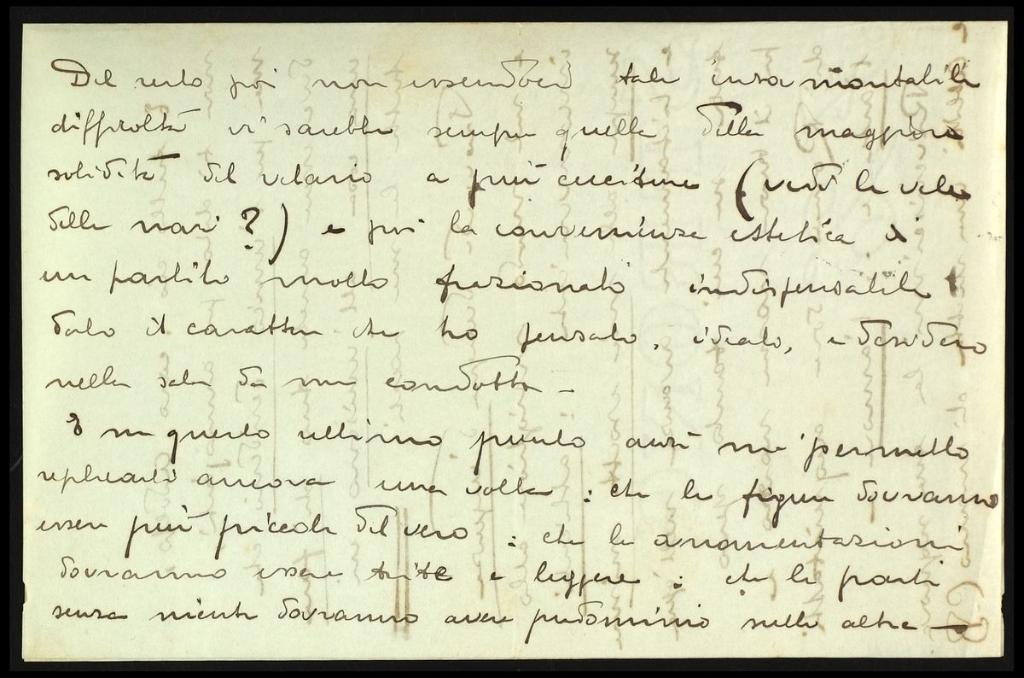 Del resto poi non essendovi tale insormontabile
difficoltà vi sarebbe sempre quella della maggiore
solidità del velario a più cuciture (vedi le vele
delle navi?) e poi la convenienza estetica di
un partito molto frazionato indispensabile
dato il carattere che ho pensato, ideato, e desidero
nella sala da me condotta -
E su questo ultimo punto anzi mi permetto
replicarti ancora una volta: che le figure dovranno
essere più piccole del vero: che le ornamentazioni
dovranno essere trite e leggere: che le parti
senza niente dovranno avere predominio sulle altre —